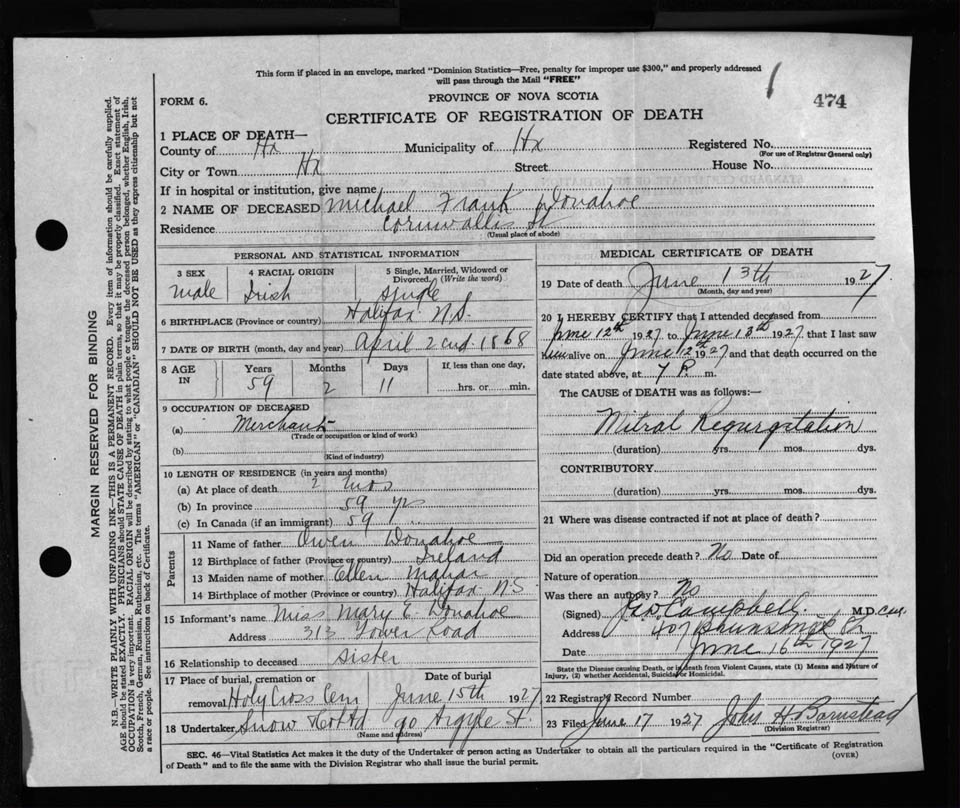 This form if placed in an envelope, marked "Dominion Statistics—Free, penalty for improper use $300," and properly addressed
will pass through the Mail "FREE"
474
FORM 6.
PROVINCE OF NOVA SCOTIA
CERTIFICATE OF REGISTRATION OF DEATH
1 PLACE OF DEATH—
County of Hx Municipality of Hx Registered No.
(For use of Registrar General only)
City or Town Hx Street House No.
If in hospital or institution, give name
2 NAME OF DECEASED Michael Frank Donahoe
Residence Cornwallis St
(Usual place of abode)
PERSONAL AND STATISTICAL INFORMATION
3 SEX 4 RACIAL ORIGIN 5 Single, Married, Widowed or
Divorced. (Write the word)
Male Irish Single
6 BIRTHPLACE (Province or country) Halifax N.S.
7 DATE OF BIRTH (month, day and year) April 2cnd 1868
8 AGE IN Years Months Days If, less than one day,
59 2 11 hrs. or min.
9 OCCUPATION OF DECEASED
(a) Merchant
(Trade or occupation or kind of work)
(b)
(Kind of industry)
10 LENGTH OF RESIDENCE (in years and months)
(a) At place of death 2 mos
(b) In province 59 yrs
(c) In Canada (if an immigrant) 59
Parents
11 Name of father Owen Donahoe
12 Birthplace of father (Province or country) Ireland
13 Maiden name of mother Ellen Mahar
14 Birthplace of mother (Province or country) Halifax NS
15 Informant's name Miss Mary E. Donahoe
Address 313 Tower Road
16 Relationship to deceased Sister
17 Place of burial, cremation or Date of burial
removal Holy Cross Cem June 15th 1927
18 Undertaker Snow & Co Ltd 90 Argyle St.
(Name and address)
MEDICAL CERTIFICATE OF DEATH
19 Date of death June 13th 1927
(Month, day and year)
20 I HEREBY CERTIFY that I attended deceased from
June 12th 1927 to June 13th 1927 that I last saw
him alive on June 12th 1927 and that death occurred on the
date stated above, at 7 P. m.
The CAUSE of DEATH was as follows:—
Mitral Regurgitation
(duration) yrs. mos. dys.
CONTRIBUTORY
(duration) yrs. mos. dys.
21 Where was disease contracted if not at place of death?
Did an operation precede death? No Date of
Nature of operation
Was there an autopsy? No
(Signed) Campbell M.D.
Address 407 St
Date June 16th 1927
State the Disease causing Death, or in death from Violent Causes, state (1) Means and Nature of
Injury, (2) whether Accidental, Suicidal or Homicidal.
22 Registrars Record Number
23 Filed June 17 1927 John H Barnstead
(Division Registrar)
SEC. 46—Vital Statistics Act makes it the duty of the Undertaker or person acting as Undertaker to obtain all the particulars required in the "Certificate of Registration
of Death" and to file the same with the Division Registrar who shall issue the burial permit.
(OVER)
MARGIN RESERVED FOR BINDING
N.B.—WRITE PLAINLY WITH UNFADING INK—THIS IS A PERMANENT RECORD. Every item of information should be carefully supplied.
AGE should be stated EXACTLY. PHYSICIANS should STATE CAUSE OF DEATH in plain terms, so that it may be properly classified. Exact statement of
OCCUPATION is very important. RACIAL ORIGIN will be described by stating to what people or tongue the deceased person belonged, whether English, Irish,
Scotch, French, German, Russian, Ruthenian, etc. The terms "AMERICAN" or "CANADIAN" SHOULD NOT BE USED as they express citizenship but not
a race or people. See instructions on back of Certificate.